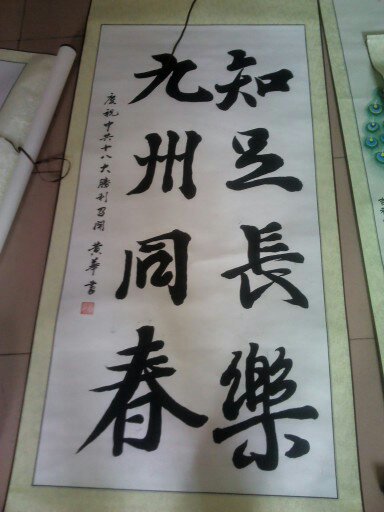 知足長樂
九州同春
庆祝中共十八大勝利召開 黄華書